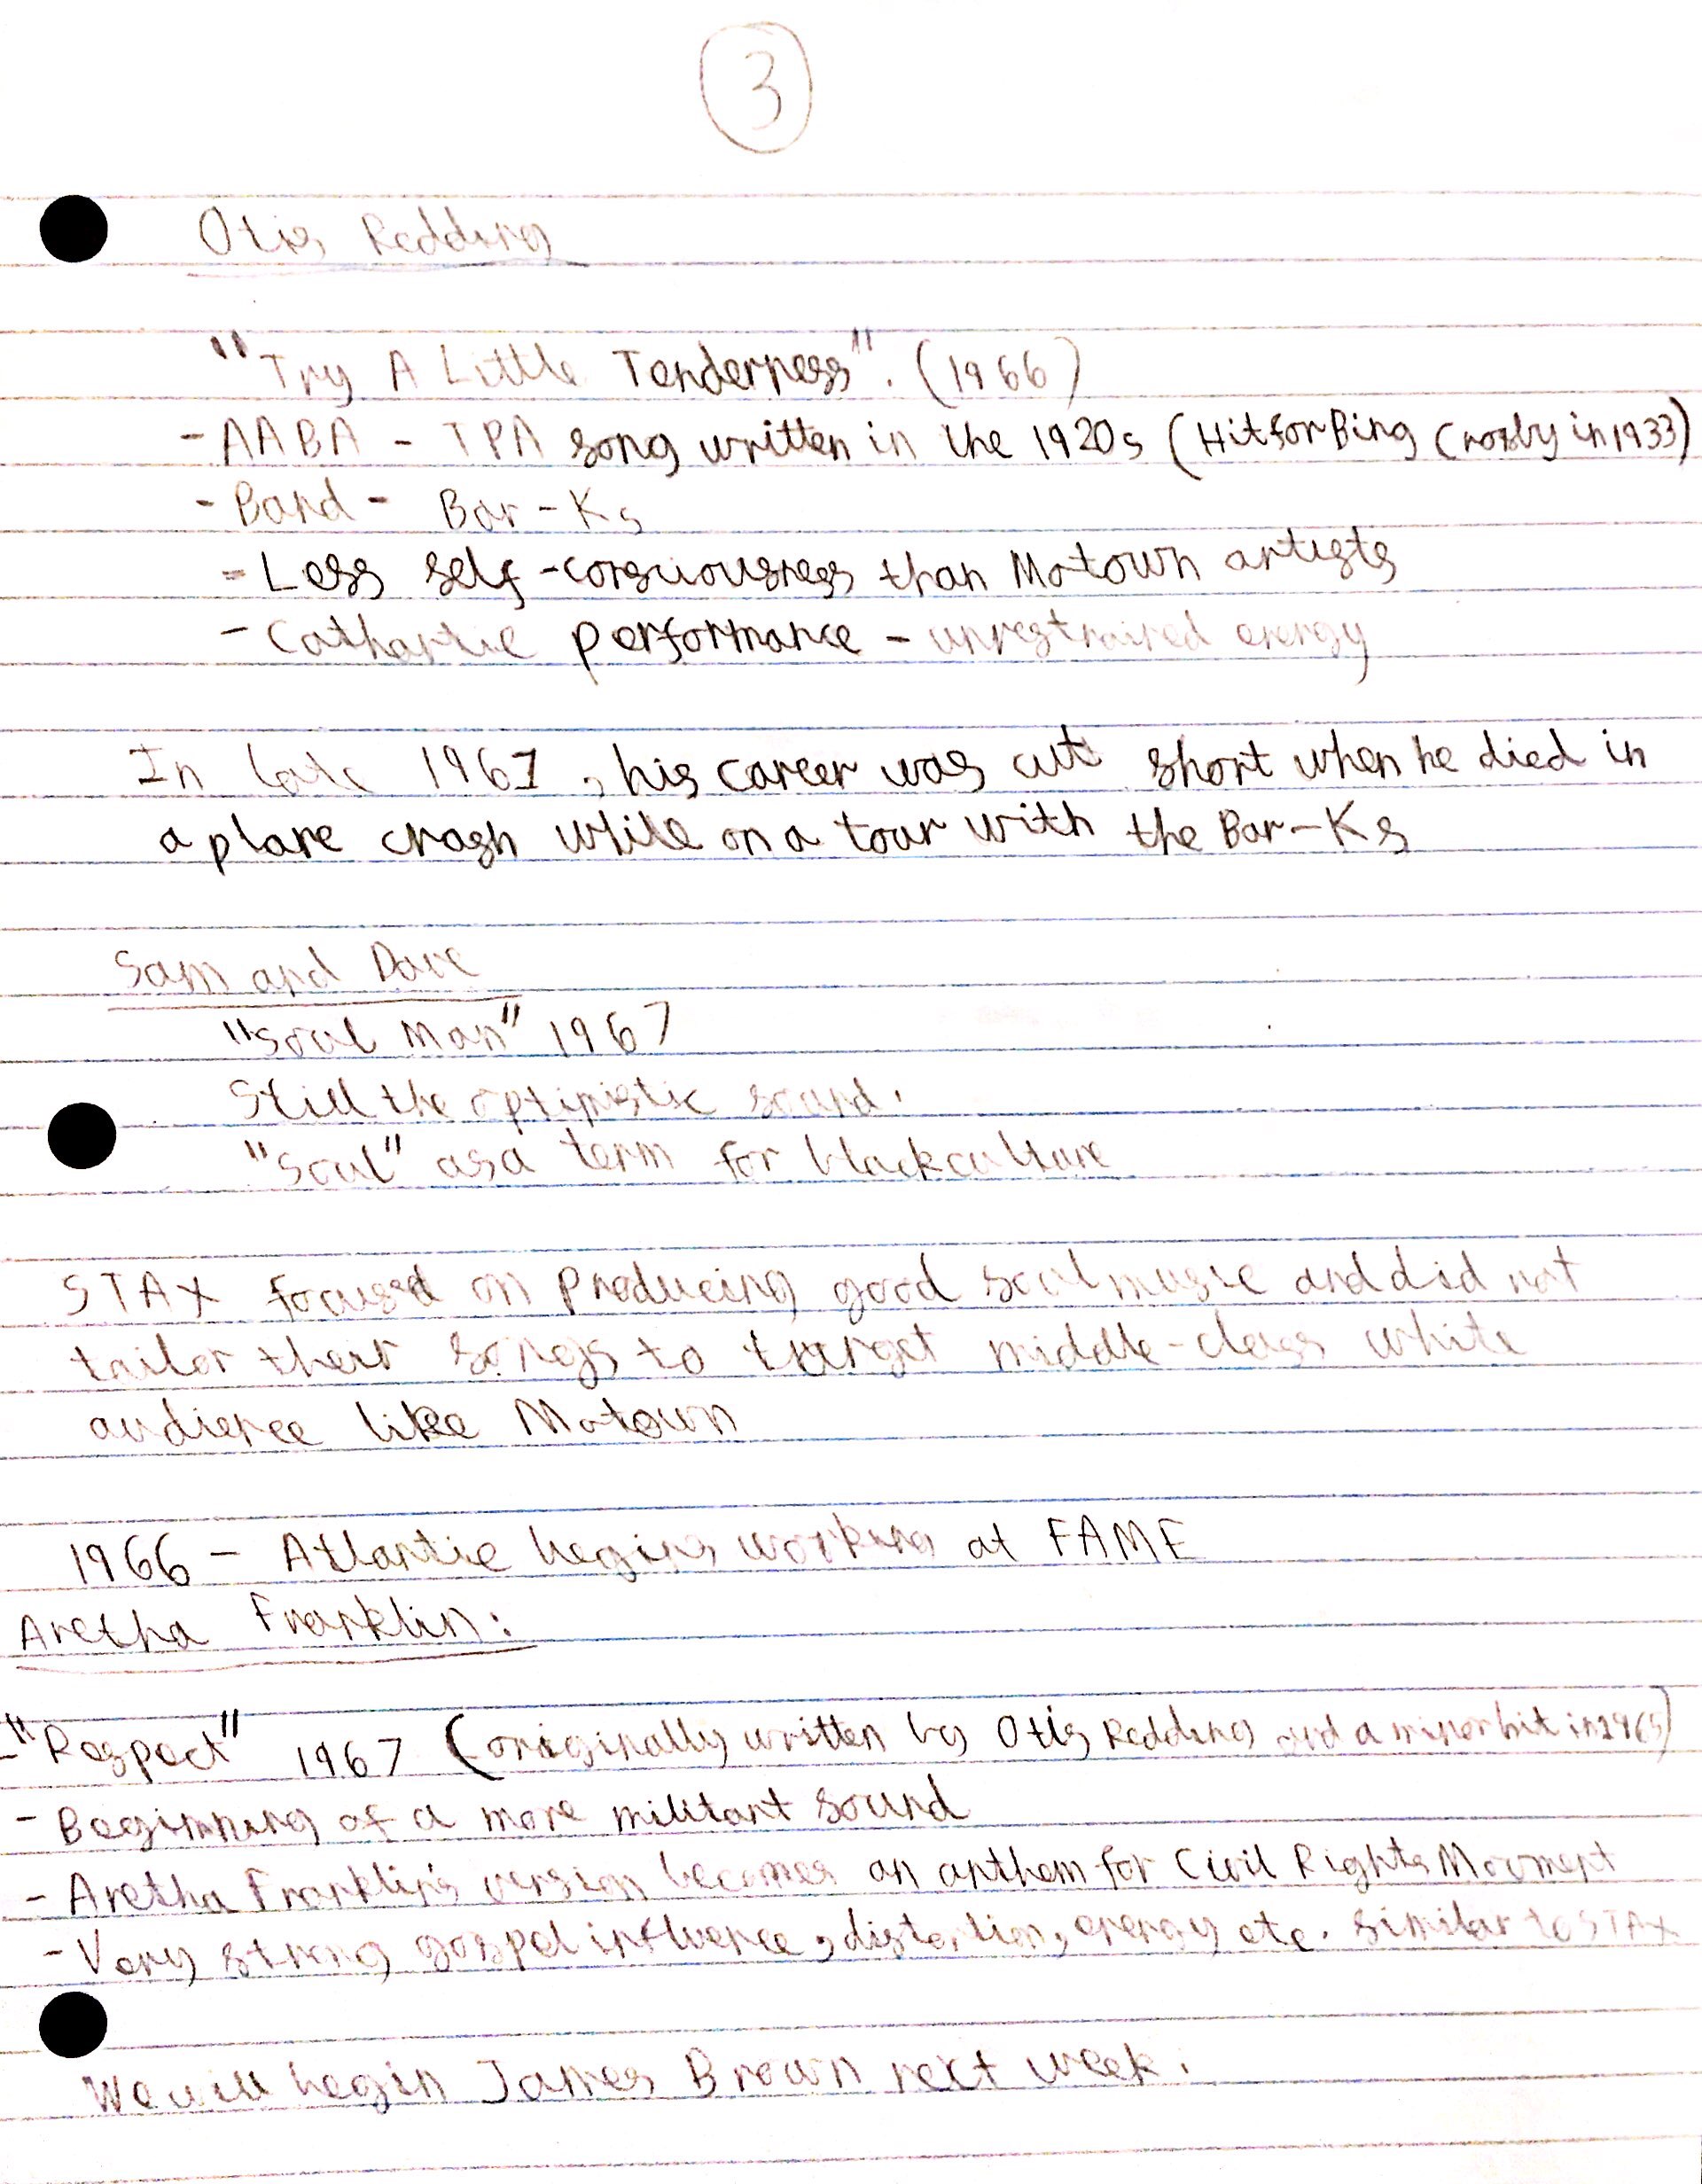 3
Otis Redding
"Try A Little Tenderness". (1966)
- AABA - TPA song written in the 1920s (Hit for Bing Crosby in 1933)
- Band - Bar-Ks
- Less self-consciousness than Motown artists
- Cathartic performance - unrestrained energy
In late 1967, his career was cut short when he died in
a plane crash while on a tour with the Bar-Ks
Sam and Dave
"Soul Man" 1967
Still the optimistic sound.
"Soul" as a term for black culture
STAX focused on producing good soul music and did not
tailor their songs to target middle-class white
audience like Motown
1966 - Atlantic begins working at FAME
Aretha Franklin:
- "Respect" 1967 (originally written by Otis Redding and a minor hit in 1965)
- Beginning of a more militant sound
- Aretha Franklin's version becomes an anthem for Civil Rights Movment
- Very strong gospel influence, distortion, energy etc. similar to STAX
We will begin James Brown next week.